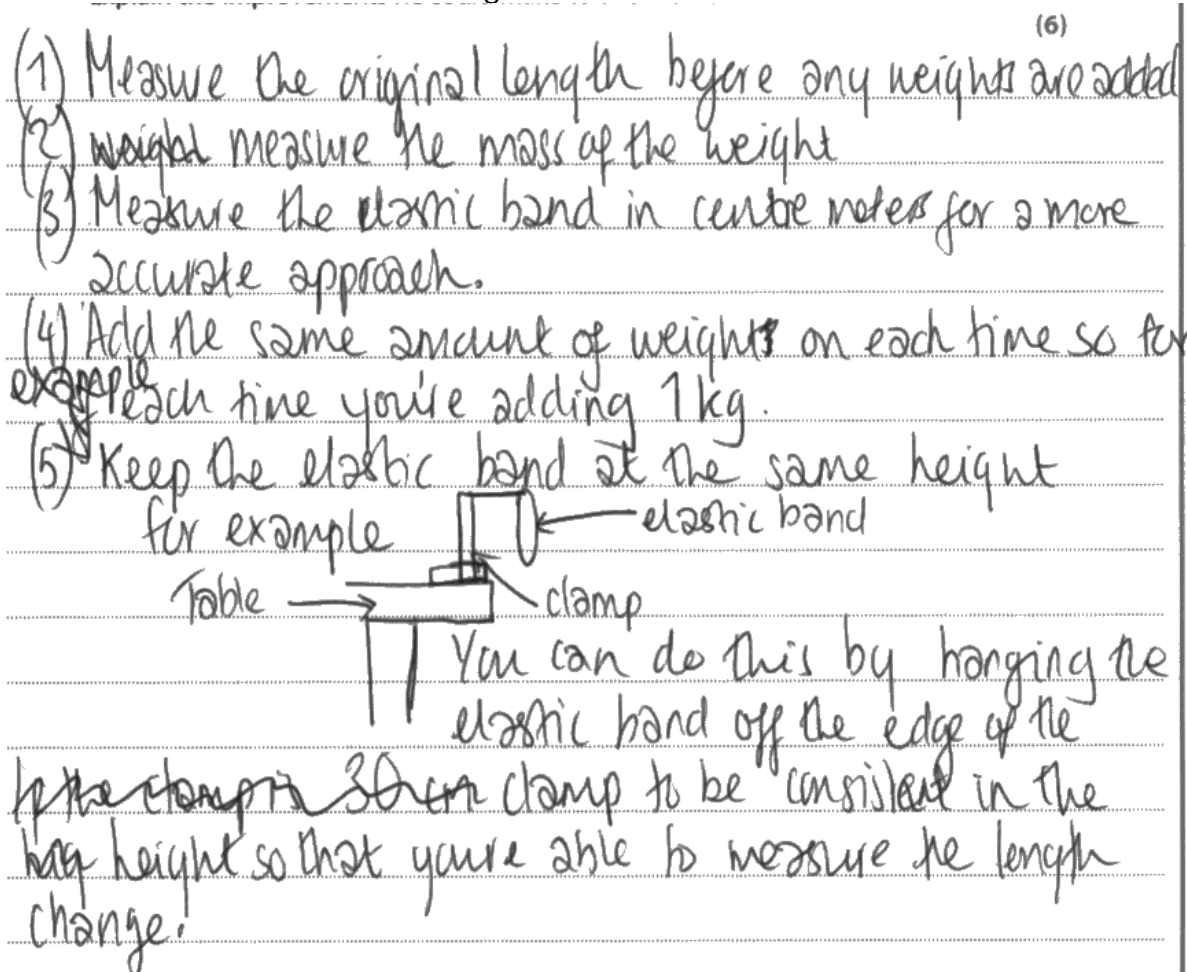 (6)
(1) Measure the original length before any weights are added
(2) weight measure the mass of the weight
(3) Measure the elastic band in centre meters for a more
accurate approach.
(4) Add the same amount of weights on each time so for
example each time you're adding 1kg.
(5) Keep the elastic band at the same height
for example
elastic band
Table
clamp
You can do this by hanging the
elastic band off the edge of the
If the clamp is 30cm clamp to be consistent in the
height so that you're able to measure the length
change.